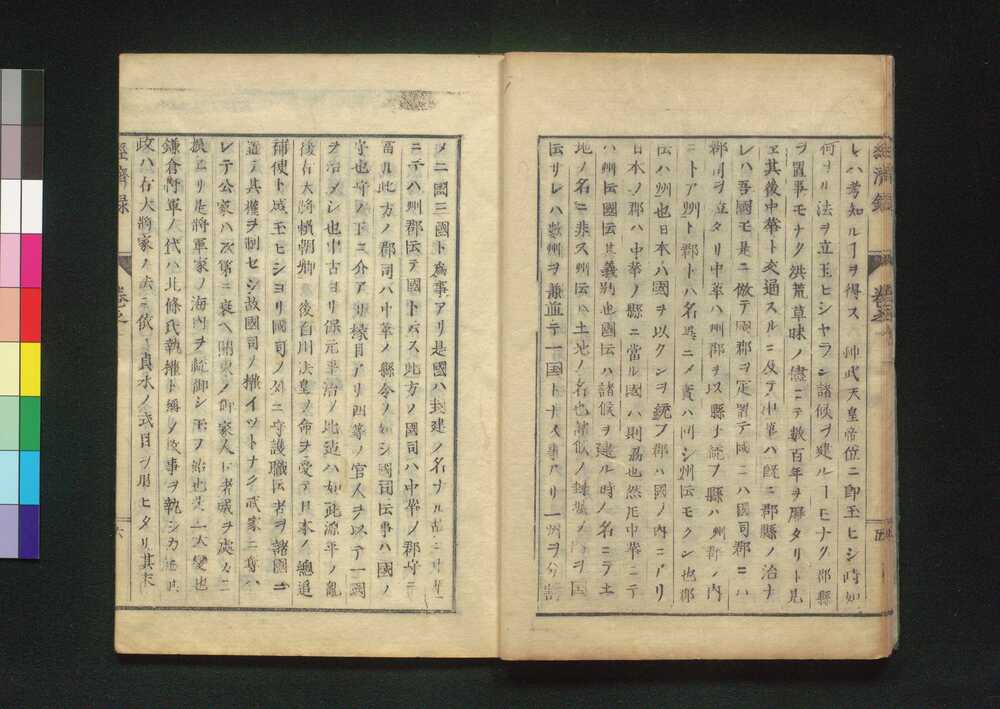 經濟錄
卷之一
五
レハ考知ル事ヲ得ス 神武天皇帝位ニ即玉ヒシ時如
何ナル法ヲ立玉ヒシヤラン諸侯ヲ建ルヿモナク郡縣
ヲ置事モナク洪荒草昧ノ儘ニテ数百年ヲ歴タリト見
エ其後中華ト交通スルニ及テ中華ハ既ニ郡縣ノ治ナ
レハ吾國モ是ニ倣テ國郡ヲ定置テ國ニハ國司郡ニハ
郡司ヲ立タリ中華ハ州郡ヲ以縣ヲ統フ縣ハ州郡ノ内
ニトアリ州ト郡トハ名異ニメ實ハ同シ州伝モクン也郡
伝ハ州也日本ハ國ヲ以クンヲ統フ郡ハ國ノ内ニアリ
日本ノ郡ハ中華ノ縣ニ當ル國ハ則州也然𪜈中華ニテ
ハ州伝國伝其義別也國伝ハ諸侯ヲ建ル時ノ名ニテ土
地ノ名ニ非ス州伝ハ土地ノ名也諸侯ノ封域ノ内ヲ國
伝サレハ数州ヲ兼並テ一国トナス事アリ一州ヲ分割
メ二國三國ト為事アリ是國ハ封建ノ名ナル故ニ日本
ニテハ州郡伝テ國トハス此方ノ國司ハ中華ノ郡守ニ
當ル此方ノ郡司ハ中華ノ縣令ノ如シ國司伝事ハ國ノ
守也守ノ下ニ介アリ掾目アリ四等ノ官人ヲ以テ一國
ヲ治メシ也中古ヨリ保元平治ノ比迄ハ如此源平ノ亂
後右大將頼朝卿ノ後白川法皇ノ命ヲ受テ日本ノ總追
捕使ト成玉ヒシヨリ國司ノ外ニ守護職伝者ヲ諸國ニ
置テ其權ヲ制セシ故國司ノ權イツトナク武家ニ奪ハ
レテ公家ハ次第ニ衰ヘ關東ノ御家人ト者威ヲ處々ニ
振ヘリ是將軍家ノ海内ヲ統御シ玉フ始也是一大變也
鎌倉將軍ノ代ハ北條氏執權ト稱シ政事ヲ執シカ
政ハ右大將家ノ法ニ依リ貞永ノ式目ヲ用ヒタリ其末
經濟錄
卷之一
六